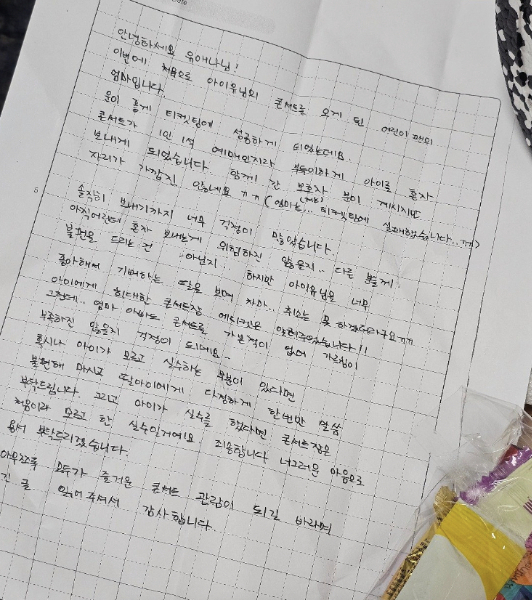 안녕하세요 유애나님!
이번에 처음으로 아이유님의 콘서트를 오게 된 어린이 팬의
엄마입니다.
운이 좋게 티켓팅에 성공하게 되었는데요.
콘서트가 1인 1석 예매인지라 부득이하게 아이를 혼자
보내게 되었습니다. 함께 간 보호자 분이 계시지만
자리가 가깝진 않네요 ㅠㅠ (엄마는... 티켓팅에 실패했습니다..ㅠㅠ)
솔직히 보내기까지 너무 걱정이 많았습니다.
아직어린데 혼자 보내는게 위험하지 않을지.. 다른 분들께
불편을 드리는 건 아닐지.... 하지만 아이유님을 너무
좋아해서 기뻐하는 딸을 보며 차마... 취소는 못 하겠더라구요ㅠㅠ
아이에게 최대한 콘서트장 에티켓은 알려주었습니다!!
그런데.. 엄마 아빠도 콘서트를 가본적이 없어 가르침이
부족하진 않을지 걱정이 되네요..
혹시나 아이가 모르고 실수하는 부분이 있다면
불편해 마시고 딸아이에게 다정하게 한번만 말씀
부탁드립니다 그리고 아이가 실수를 했다면 콘서트장은
처음이라 모르고 한 실수일거예요 죄송합니다 너그러운 마음으로
용서 부탁드리겠습니다.
아무쪼록 모두가 즐거운 콘서트 관람이 되길 바라며
긴 글 읽어주셔서 감사합니다.